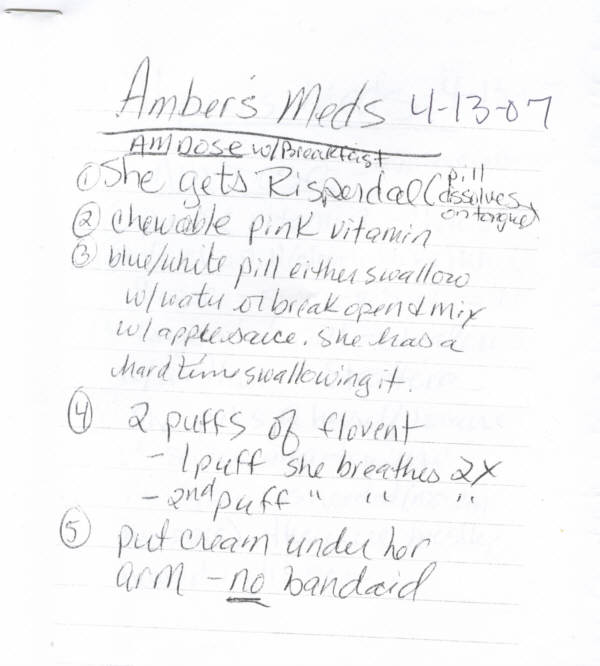 Amber's Meds 4-13-07
AM DOSE w/Breakfast
① She gets Risperdal (pill dissolves on tongue)
② chewable pink vitamin
③ blue/white pill either swallow
w/water or break open & mix
w/applesauce. She has a
hard time swallowing it.
④ 2 puffs of flovent
- 1 puff she breathes 2X
- 2nd puff " " "
⑤ put cream under her
arm - no bandaid